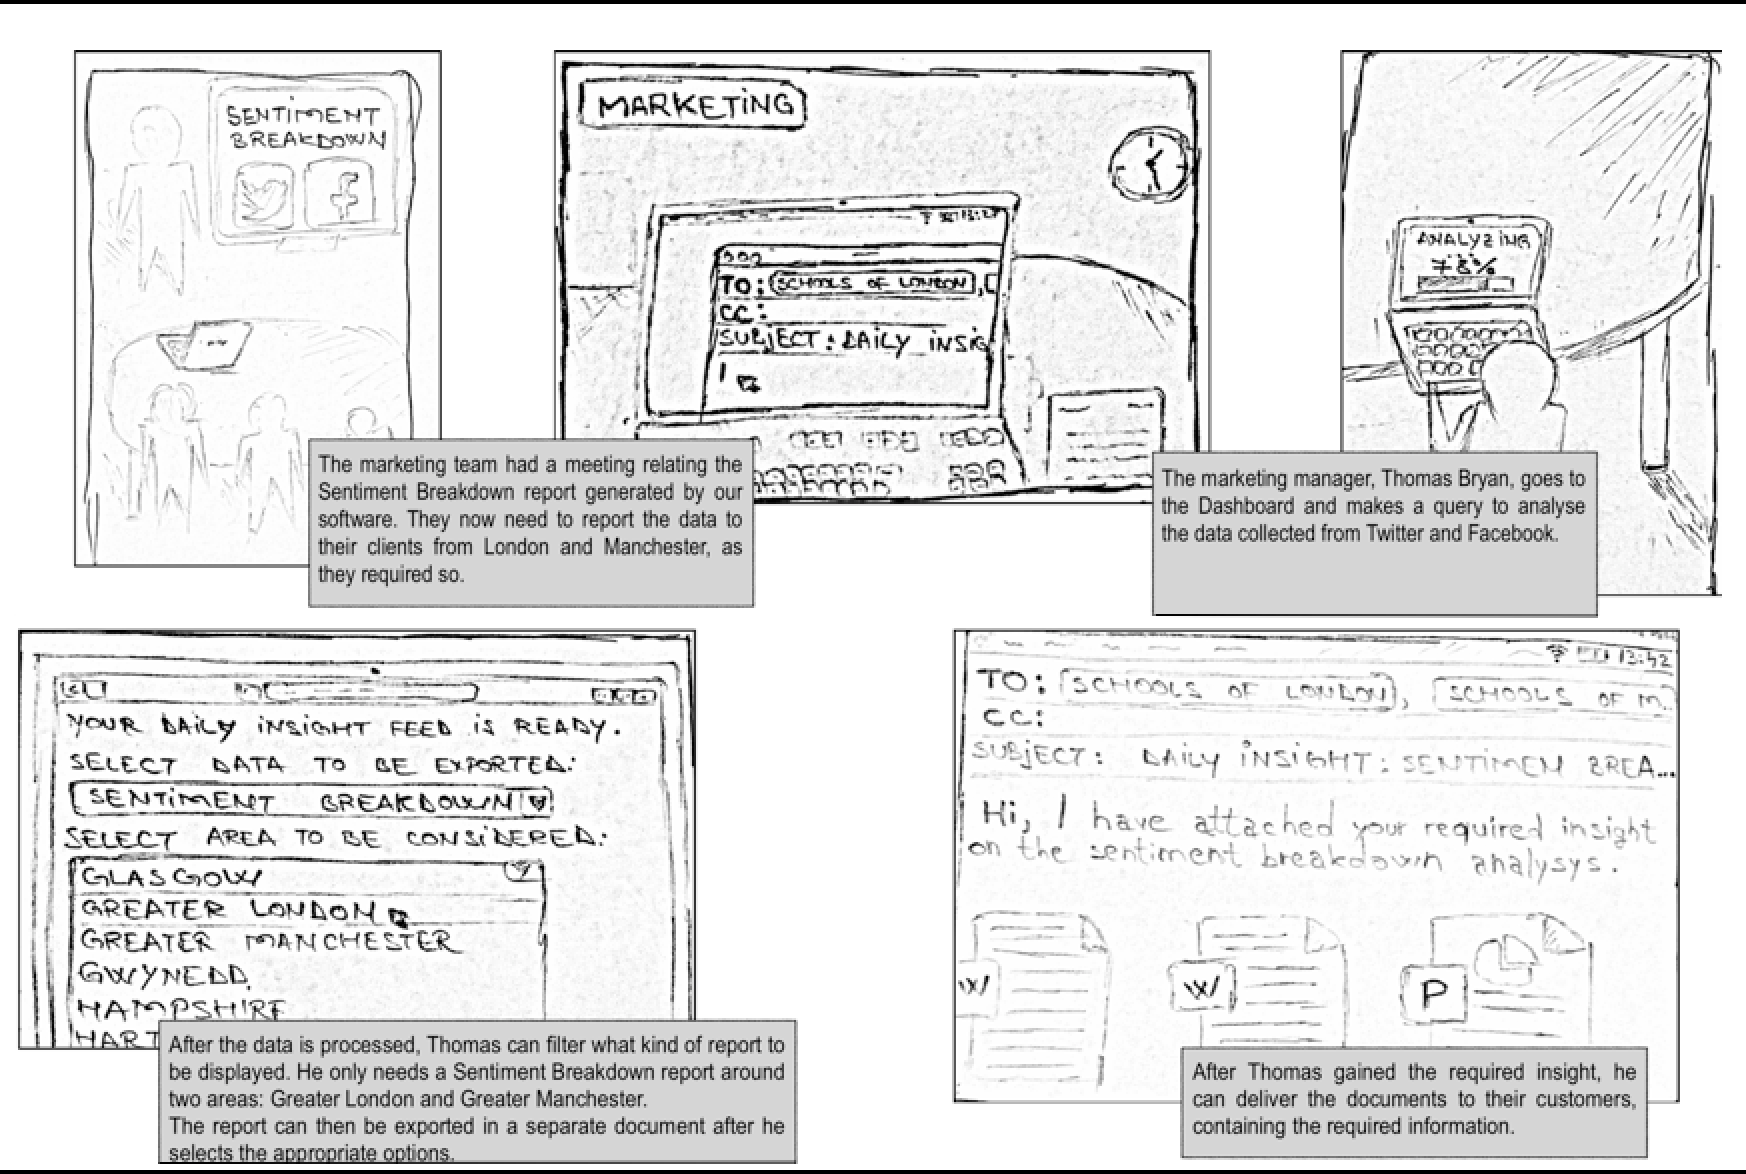 SENTIMENT
BREAKDOWN
MARKETING
TO: SCHOOLS OF LONDON,
CC:
SUBJECT: DAILY INSIG
The marketing team had a meeting relating the
Sentiment Breakdown report generated by our
software. They now need to report the data to
their clients from London and Manchester, as
they required so.
ANALYZING
78%
The marketing manager, Thomas Bryan, goes to
the Dashboard and makes a query to analyse
the data collected from Twitter and Facebook.
YOUR DAILY INSIGHT FEED IS READY.
SELECT DATA TO BE EXPORTED:
SENTIMENT BREAKDOWN
SELECT AREA TO BE CONSIDERED:
GLASGOW
GREATER LONDON
GREATER MANCHESTER
GWYNEDD
HAMPSHIRE
HART
After the data is processed, Thomas can filter what kind of report to
be displayed. He only needs a Sentiment Breakdown report around
two areas: Greater London and Greater Manchester.
The report can then be exported in a separate document after he
selects the appropriate options.
13:42
TO: SCHOOLS OF LONDON, SCHOOLS OF M.
CC:
SUBJECT: DAILY INSIGHT: SENTIMEN BREA...
Hi, I have attached your required insight
on the sentiment breakdown analysys.
W W P
After Thomas gained the required insight, he
can deliver the documents to their customers,
containing the required information.